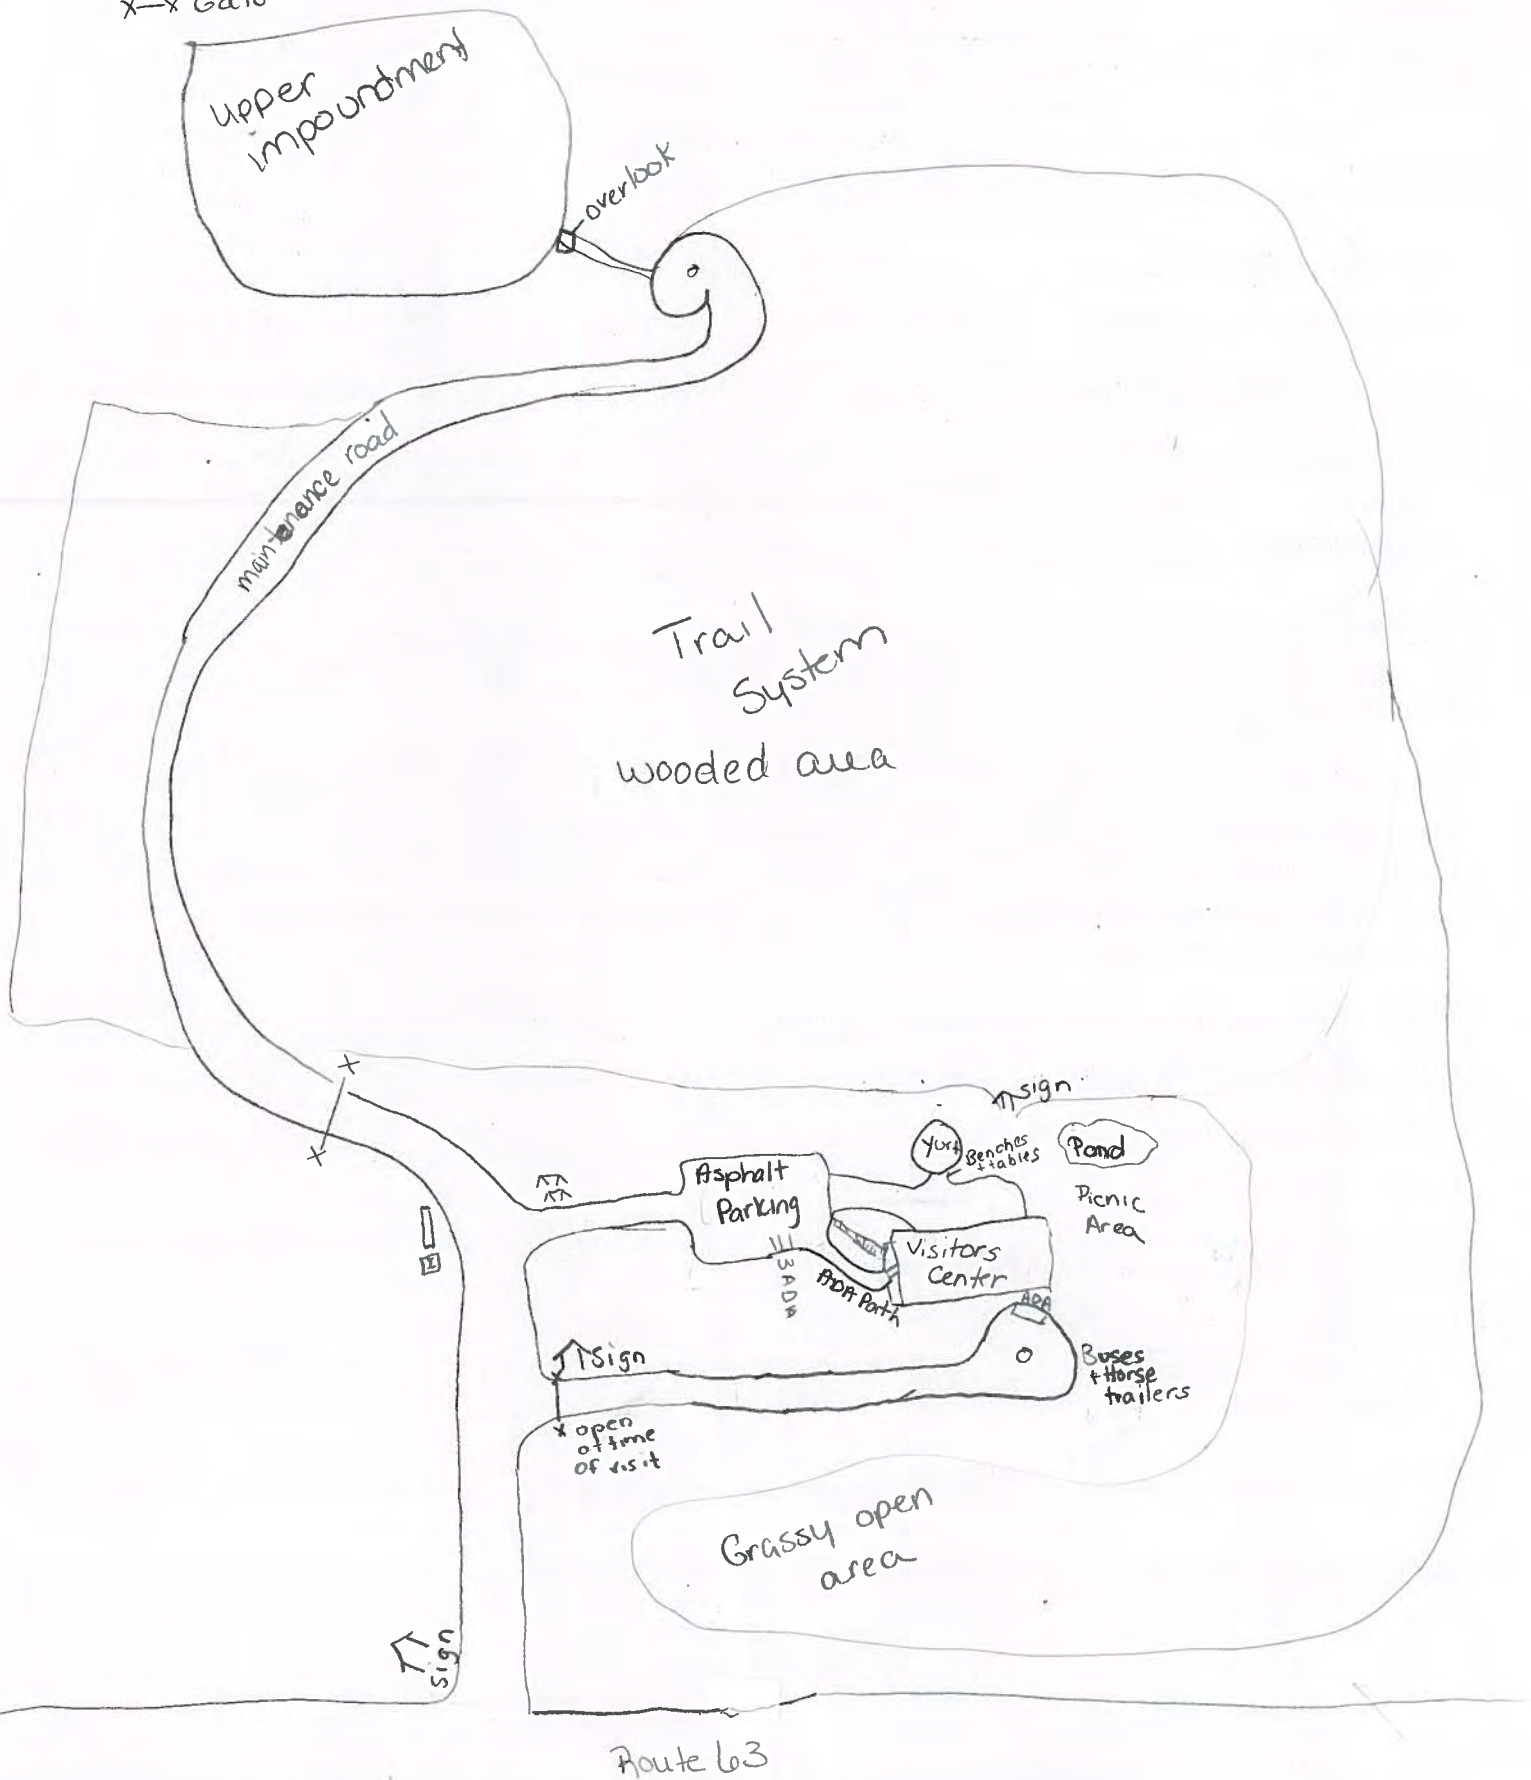 x—x Gate
upper
impoundment
overlook
maintenance road
Trail
System
wooded area
sign
Yurt
Benches
+ tables
Pond
Picnic
Area
Asphalt
Parking
3 ADA
ADA Path
Visitors
Center
ADA
Sign
Buses
+ Horse
trailers
x open
at time
of visit
Grassy open
area
sign
Route 63